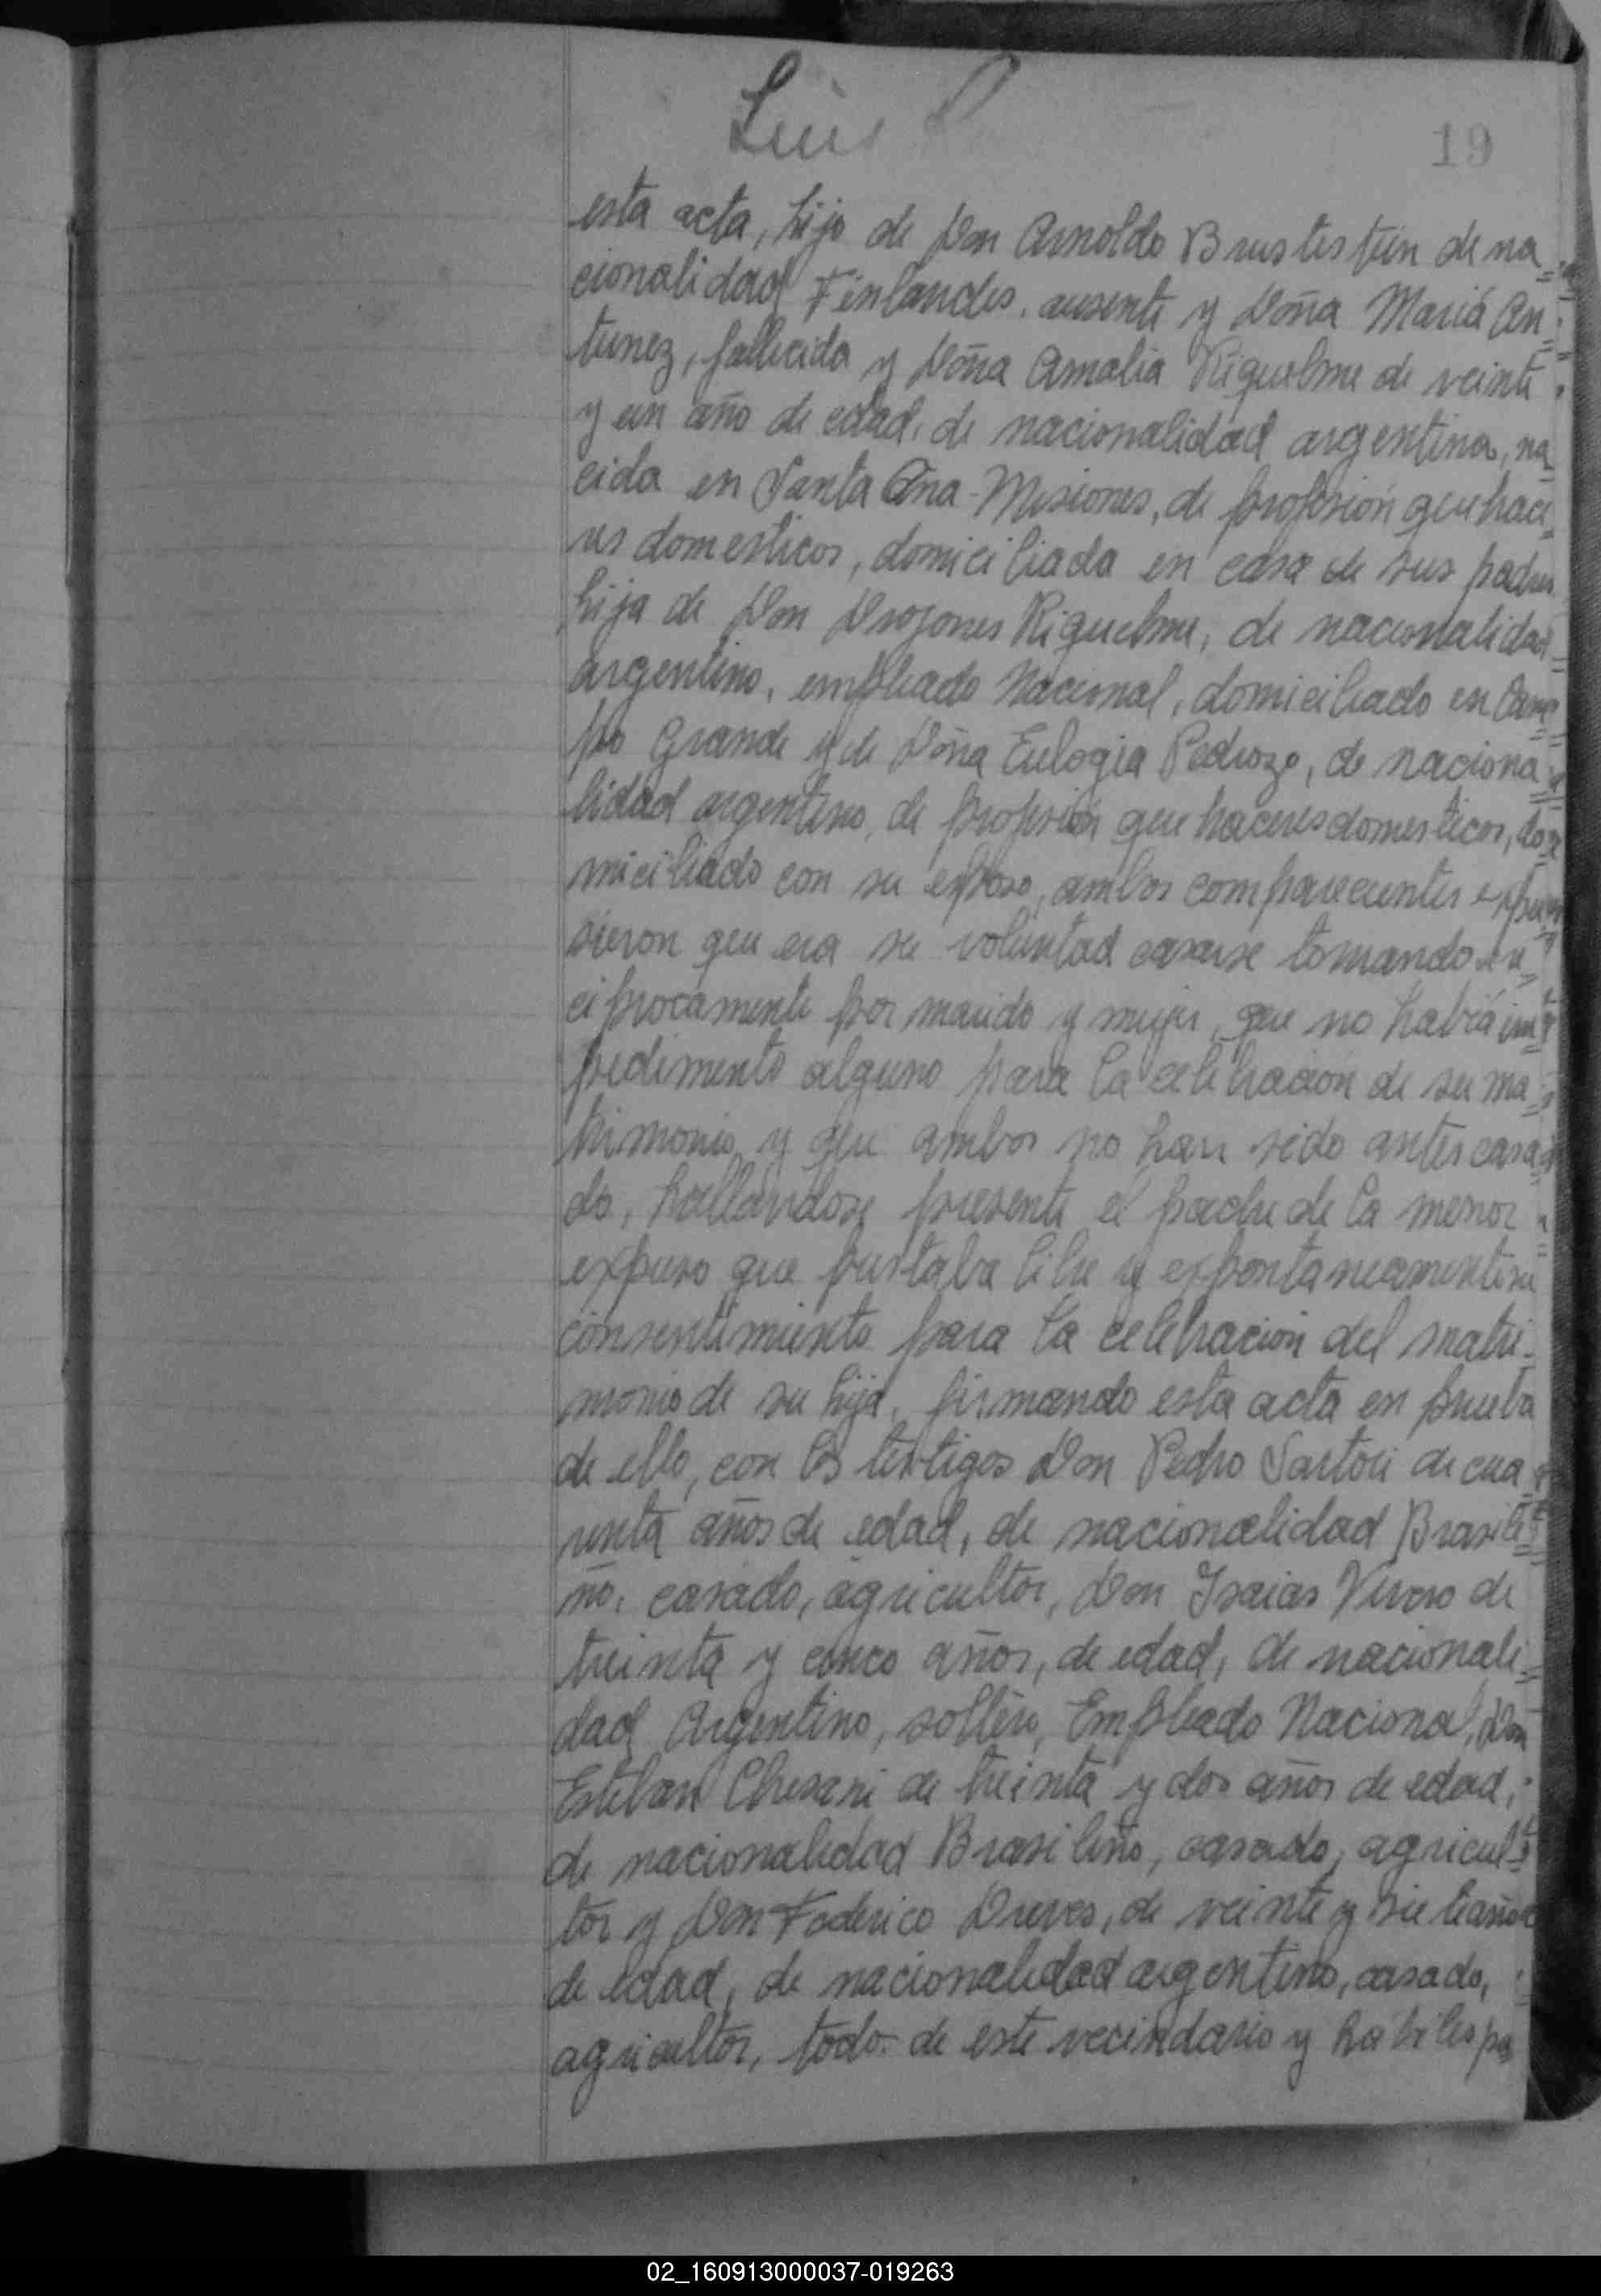 Luis
19
esta acta, hijo de Don Arnoldo Brustestein de na=
cionalidad Finlandes, ausente y Doña Mariá An=
tunez, fallecida y Doña Amalia Riquelme de veinte
y un año de edad, de nacionalidad argentina, na
cida en Santa Ana-Misiones, de profesión quehace
res domesticos, domiciliada en casa de sus padres
hija de Don Riquelme, de nacionalidad=
argentino, empleado Nacional, domiciliado en Cam=
po Grande y de Doña Eulogia Pedrozo, de naciona=
lidad argentino, de profesión que haceres domesticos, do=
miciliado con su esposo, ambos comparecientes expu=
sieron que era su voluntad casarse tomandose re=
ciprocamente por marido y mujer, que no habiá im=
pedimento alguno para la celebración de su ma=
trimonio y que ambos no han sido antes casa=
do, hallandose presente el padre de la menor
expuso que prestaba libre y expontaneamente su
consentimiento para la celebracion del matri-
monio de su hija, firmando esta acta en prueba
de ello, con los testigos Don Pedro Sartori de cua=
renta años de edad, de nacionalidad Brasile=
ño, casado, agricultor, Don Isaias Veroso de
treinta y cinco años, de edad, de nacionali=
dad Argentino, soltero, Empleado Nacional, Don
Esteban Chesani de treinta y dos años de edad,
de nacionalidad Brasileño, casado, agricul=
tor y Don Federico Dreves, de veinte y siete años
de edad, de nacionalidad argentino, casado,
agricultor, todo de este vecindario y habiles pa
02_160913000037-019263